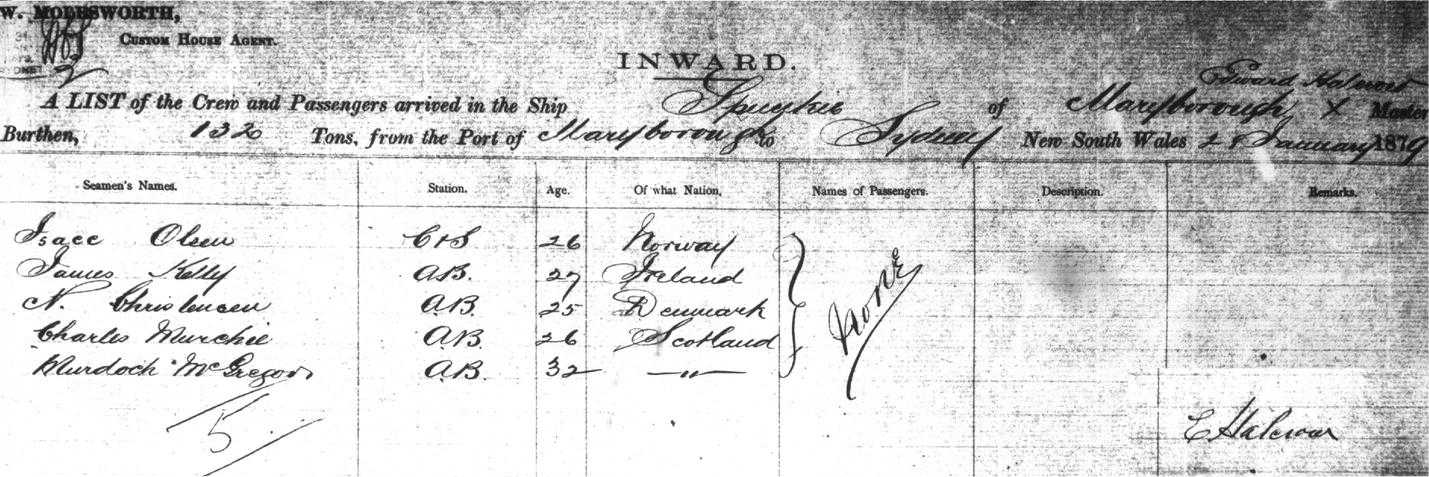 W. MOLESWORTH,
CUSTOM HOUSE AGENT.
2
INWARD.
Edward
A LIST of the Crew and Passengers arrived in the Ship of Maryborough X Master
Burthen, 132 Tons, from the Port of Maryborough to Sydney New South Wales 28 January 1879
Seamen's Names. Station. Age. Of what Nation, Names of Passengers. Description. Remarks.
Isace Olsen 26 Norway
James Kelly A.B. 27 Ireland
N. Christencen A.B. 25 Denmark
Charles Murchie A.B. 26 Scotland
Murdoch McGregor A.B. 32 —"—
None
5